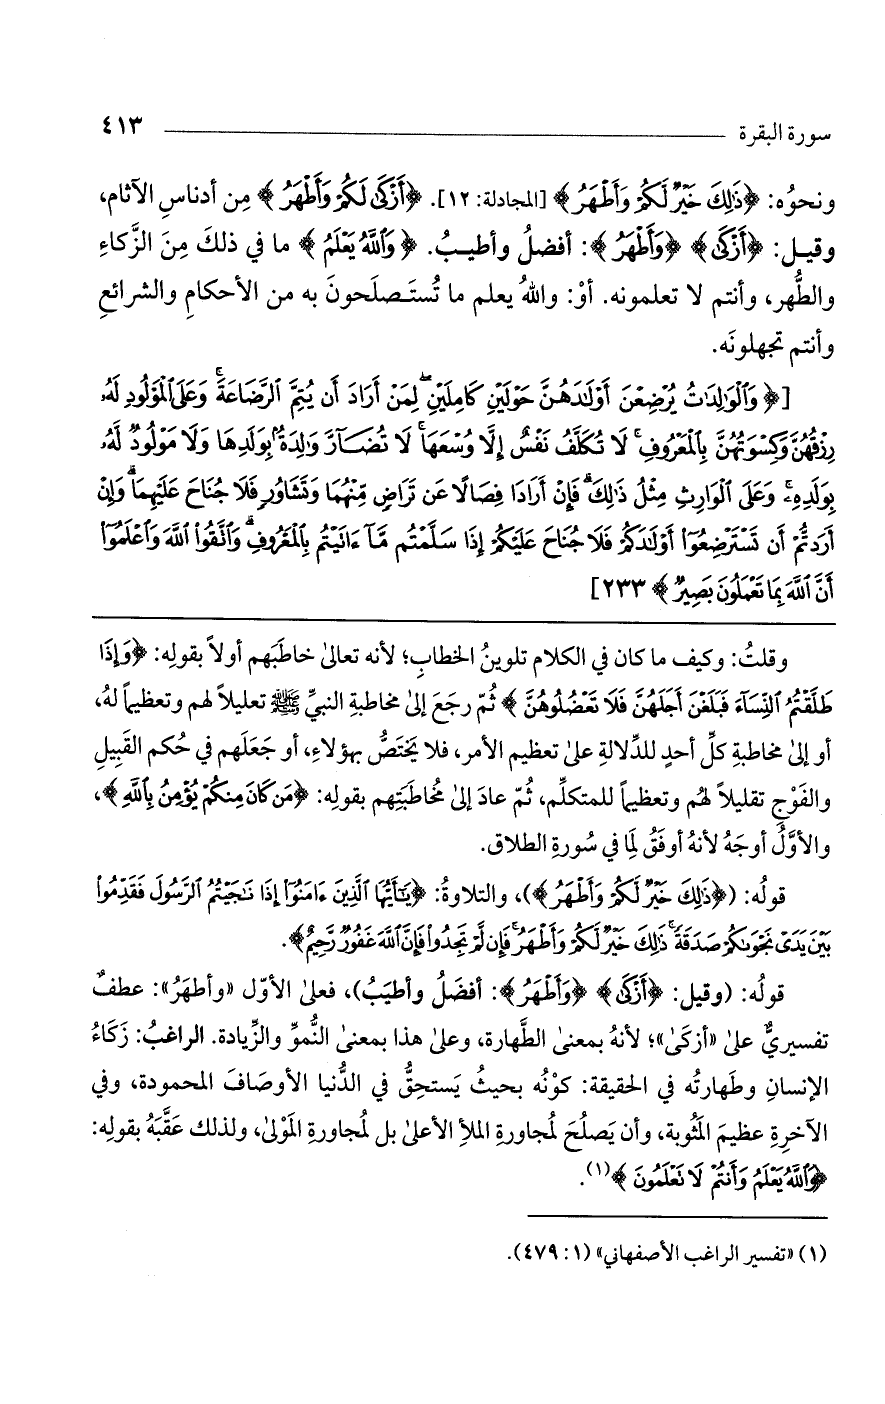 سورة البقرة ٤١٣
ونحوُه: ﴿ذَٰلِكَ خَيْرٌ لَّكُمْ وَأَطْهَرُ﴾ [المجادلة: ١٢]. ﴿أَزْكَىٰ لَكُمْ وَأَطْهَرُ﴾ مِن أدناسِ الآثام،
وقيل: ﴿أَزْكَىٰ﴾ ﴿وَأَطْهَرُ﴾: أفضلُ وأطيبُ. ﴿وَاللَّهُ يَعْلَمُ﴾ ما في ذلكَ مِنَ الزَّكاءِ
والطُّهر، وأنتم لا تعلمونه. أوْ: واللهُ يعلم ما تُستَصلَحونَ به من الأحكامِ والشرائعِ
وأنتم تجهلونَه.
[﴿وَالْوَالِدَاتُ يُرْضِعْنَ أَوْلَادَهُنَّ حَوْلَيْنِ كَامِلَيْنِ ۖ لِمَنْ أَرَادَ أَن يُتِمَّ الرَّضَاعَةَ ۚ وَعَلَى الْمَوْلُودِ لَهُ
رِزْقُهُنَّ وَكِسْوَتُهُنَّ بِالْمَعْرُوفِ ۚ لَا تُكَلَّفُ نَفْسٌ إِلَّا وُسْعَهَا ۚ لَا تُضَارَّ وَالِدَةٌ بِوَلَدِهَا وَلَا مَوْلُودٌ لَّهُ
بِوَلَدِهِ ۚ وَعَلَى الْوَارِثِ مِثْلُ ذَٰلِكَ ۗ فَإِنْ أَرَادَا فِصَالًا عَن تَرَاضٍ مِّنْهُمَا وَتَشَاوُرٍ فَلَا جُنَاحَ عَلَيْهِمَا ۗ وَإِنْ
أَرَدتُّمْ أَن تَسْتَرْضِعُوا أَوْلَادَكُمْ فَلَا جُنَاحَ عَلَيْكُمْ إِذَا سَلَّمْتُم مَّا آتَيْتُم بِالْمَعْرُوفِ ۗ وَاتَّقُوا اللَّهَ وَاعْلَمُوا
أَنَّ اللَّهَ بِمَا تَعْمَلُونَ بَصِيرٌ﴾ ٢٣٣]
وقلتُ: وكيف ما كان في الكلام تلوينُ الخطابِ؛ لأنه تعالىٰ خاطَبَهم أولاً بقولِه: ﴿وَإِذَا
طَلَّقْتُمُ النِّسَاءَ فَبَلَغْنَ أَجَلَهُنَّ فَلَا تَعْضُلُوهُنَّ﴾ ثُمّ رجَعَ إلىٰ مخاطبةِ النبيِّ ﷺ تعليلاً لهم وتعظيماً لهُ،
أو إلىٰ مخاطبةِ كلِّ أحدٍ للدِّلالةِ علىٰ تعظيم الأمر، فلا يَختَصُّ بهؤلاءِ، أو جَعَلَهم في حُكم القَبِيلِ
والفَوْجِ تقليلاً لهُم وتعظيماً للمتكلِّم، ثُمّ عادَ إلىٰ مُخاطَبَتِهم بقولِه: ﴿مَن كَانَ مِنكُمْ يُؤْمِنُ بِاللَّهِ﴾،
والأوَّلُ أوجَهُ لأنهُ أوفَقُ لِمَا في سُورةِ الطلاق.
قولُه: (﴿ذَٰلِكَ خَيْرٌ لَّكُمْ وَأَطْهَرُ﴾)، والتلاوةُ: ﴿يَا أَيُّهَا الَّذِينَ آمَنُوا إِذَا نَاجَيْتُمُ الرَّسُولَ فَقَدِّمُوا
بَيْنَ يَدَيْ نَجْوَاكُمْ صَدَقَةً ۚ ذَٰلِكَ خَيْرٌ لَّكُمْ وَأَطْهَرُ ۚ فَإِن لَّمْ تَجِدُوا فَإِنَّ اللَّهَ غَفُورٌ رَّحِيمٌ﴾.
قولُه: (وقيل: ﴿أَزْكَىٰ﴾ ﴿وَأَطْهَرُ﴾: أفضَلُ وأطيَبُ)، فعلىٰ الأوّل «وأطهَرُ»: عطفٌ
تفسيريٌّ علىٰ «أزكَىٰ»؛ لأنهُ بمعنىٰ الطَّهارة، وعلىٰ هذا بمعنىٰ النُّموِّ والزِّيادة. الراغبُ: زَكَاءُ
الإنسانِ وطَهارتُه في الحقيقة: كوْنُه بحيثُ يَستحِقُّ في الدُّنيا الأوصَافَ المحمودة، وفي
الآخرةِ عظيمَ المَثُوبة، وأن يَصلُحَ لمُجاورةِ الملأِ الأعلىٰ بل لمُجاورةِ المَوْلىٰ، ولذلك عَقَّبَهُ بقولِه:
﴿وَاللَّهُ يَعْلَمُ وَأَنتُمْ لَا تَعْلَمُونَ﴾(١).
(١) «تفسير الراغب الأصفهاني» (١: ٤٧٩).